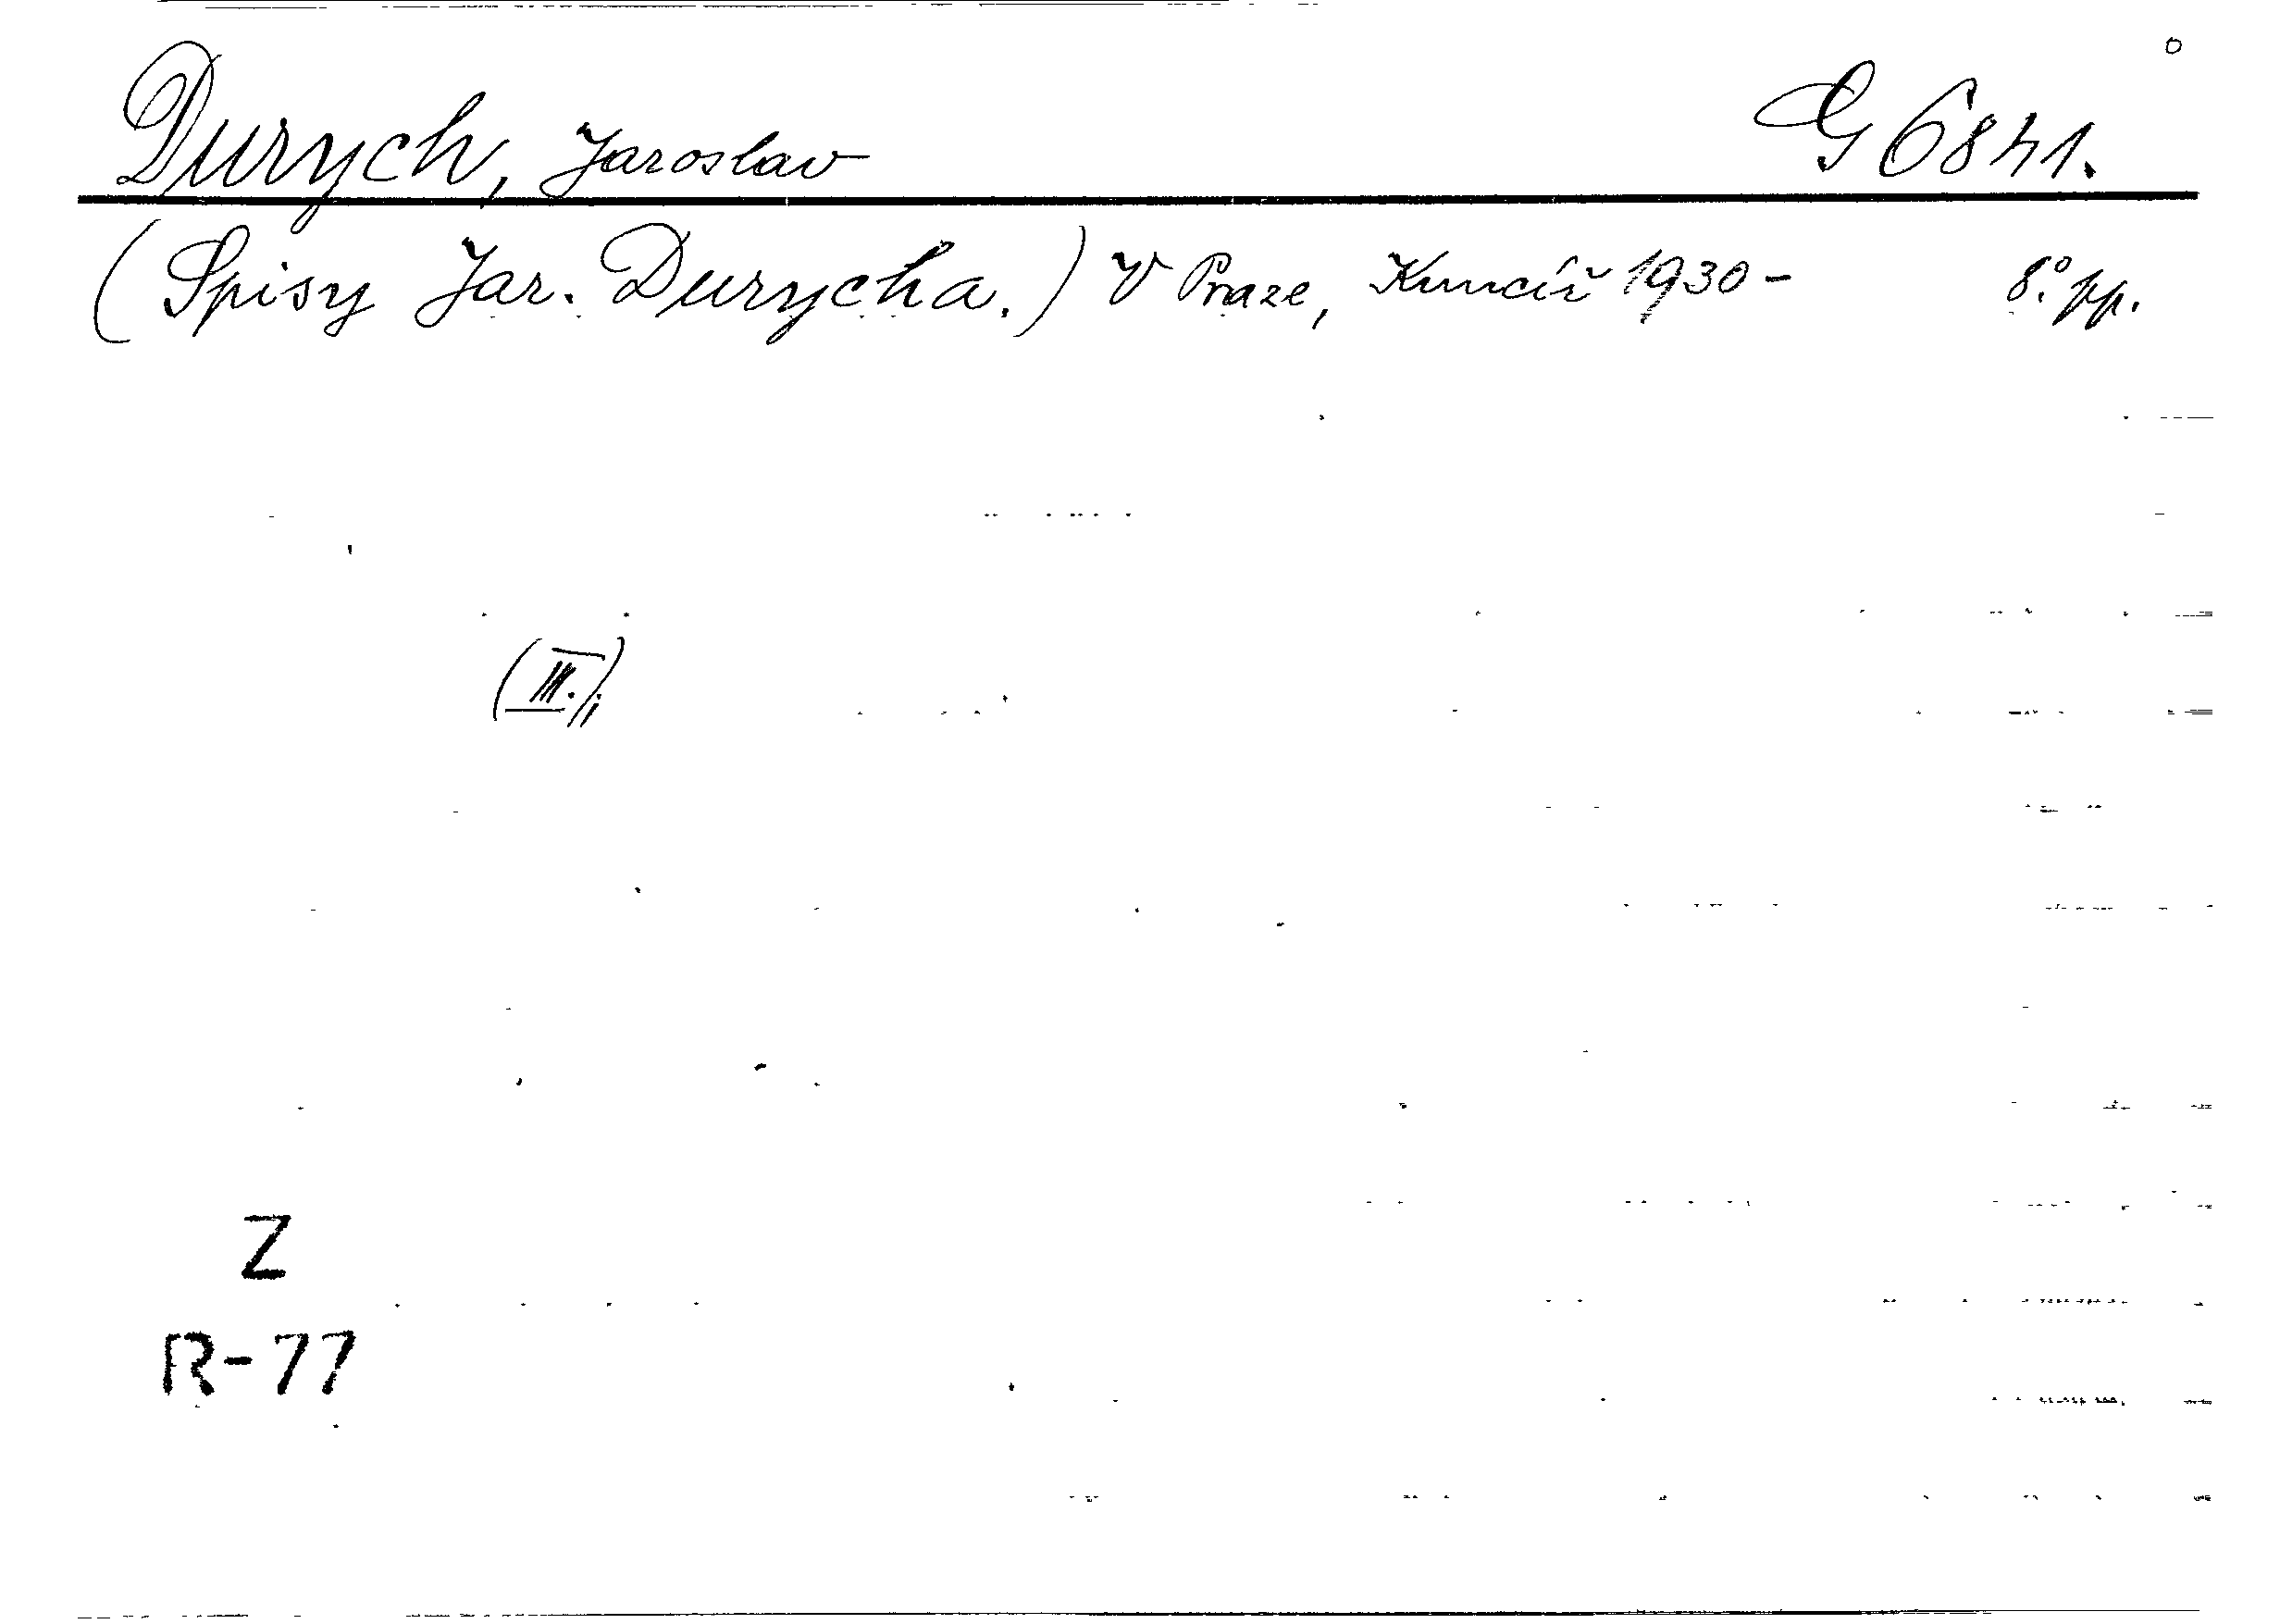 Durych, Jaroslav G 6841.
(Spisy Jar. Durycha.) V Praze, Kuncíř 1930- 8°. pp.
(III.)
Z
R-77